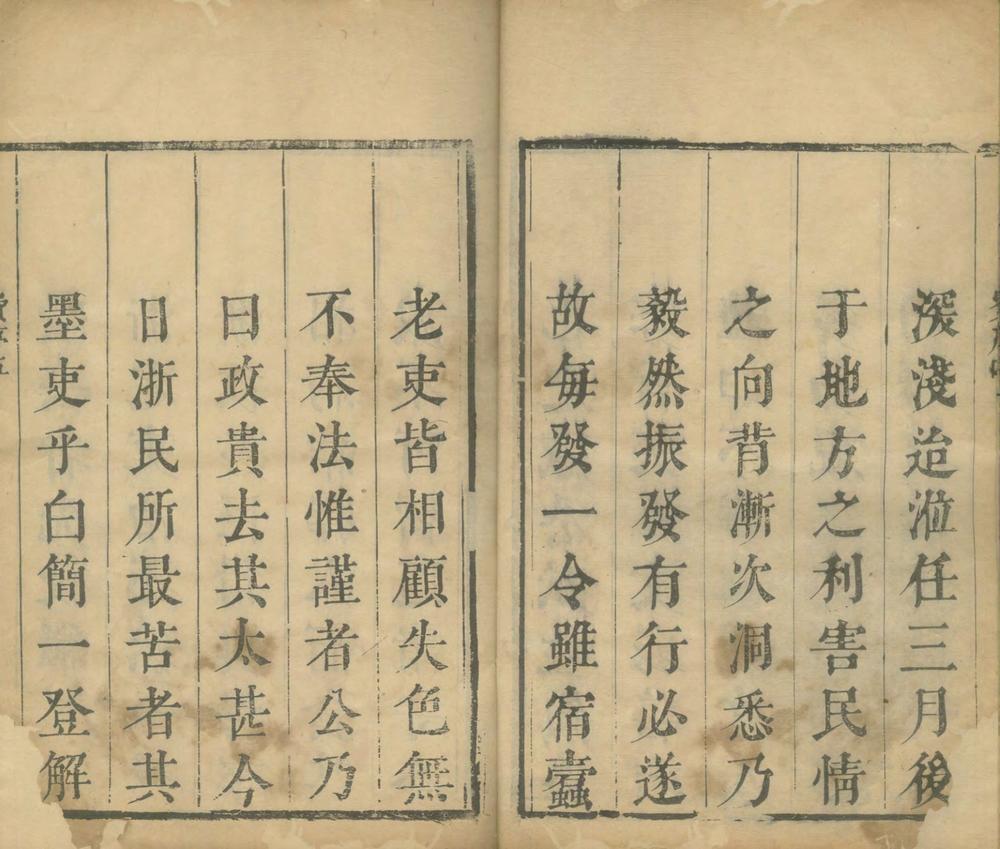 深淺迨涖任三月後
于地方之利害民情
之向背漸次洞悉乃
毅然振發有行必遂
故每發一令雖宿蠹
老吏皆相顧失色無
不奉法惟謹者公乃
曰政貴去其太甚今
日浙民所最苦者其
墨吏乎白簡一登解